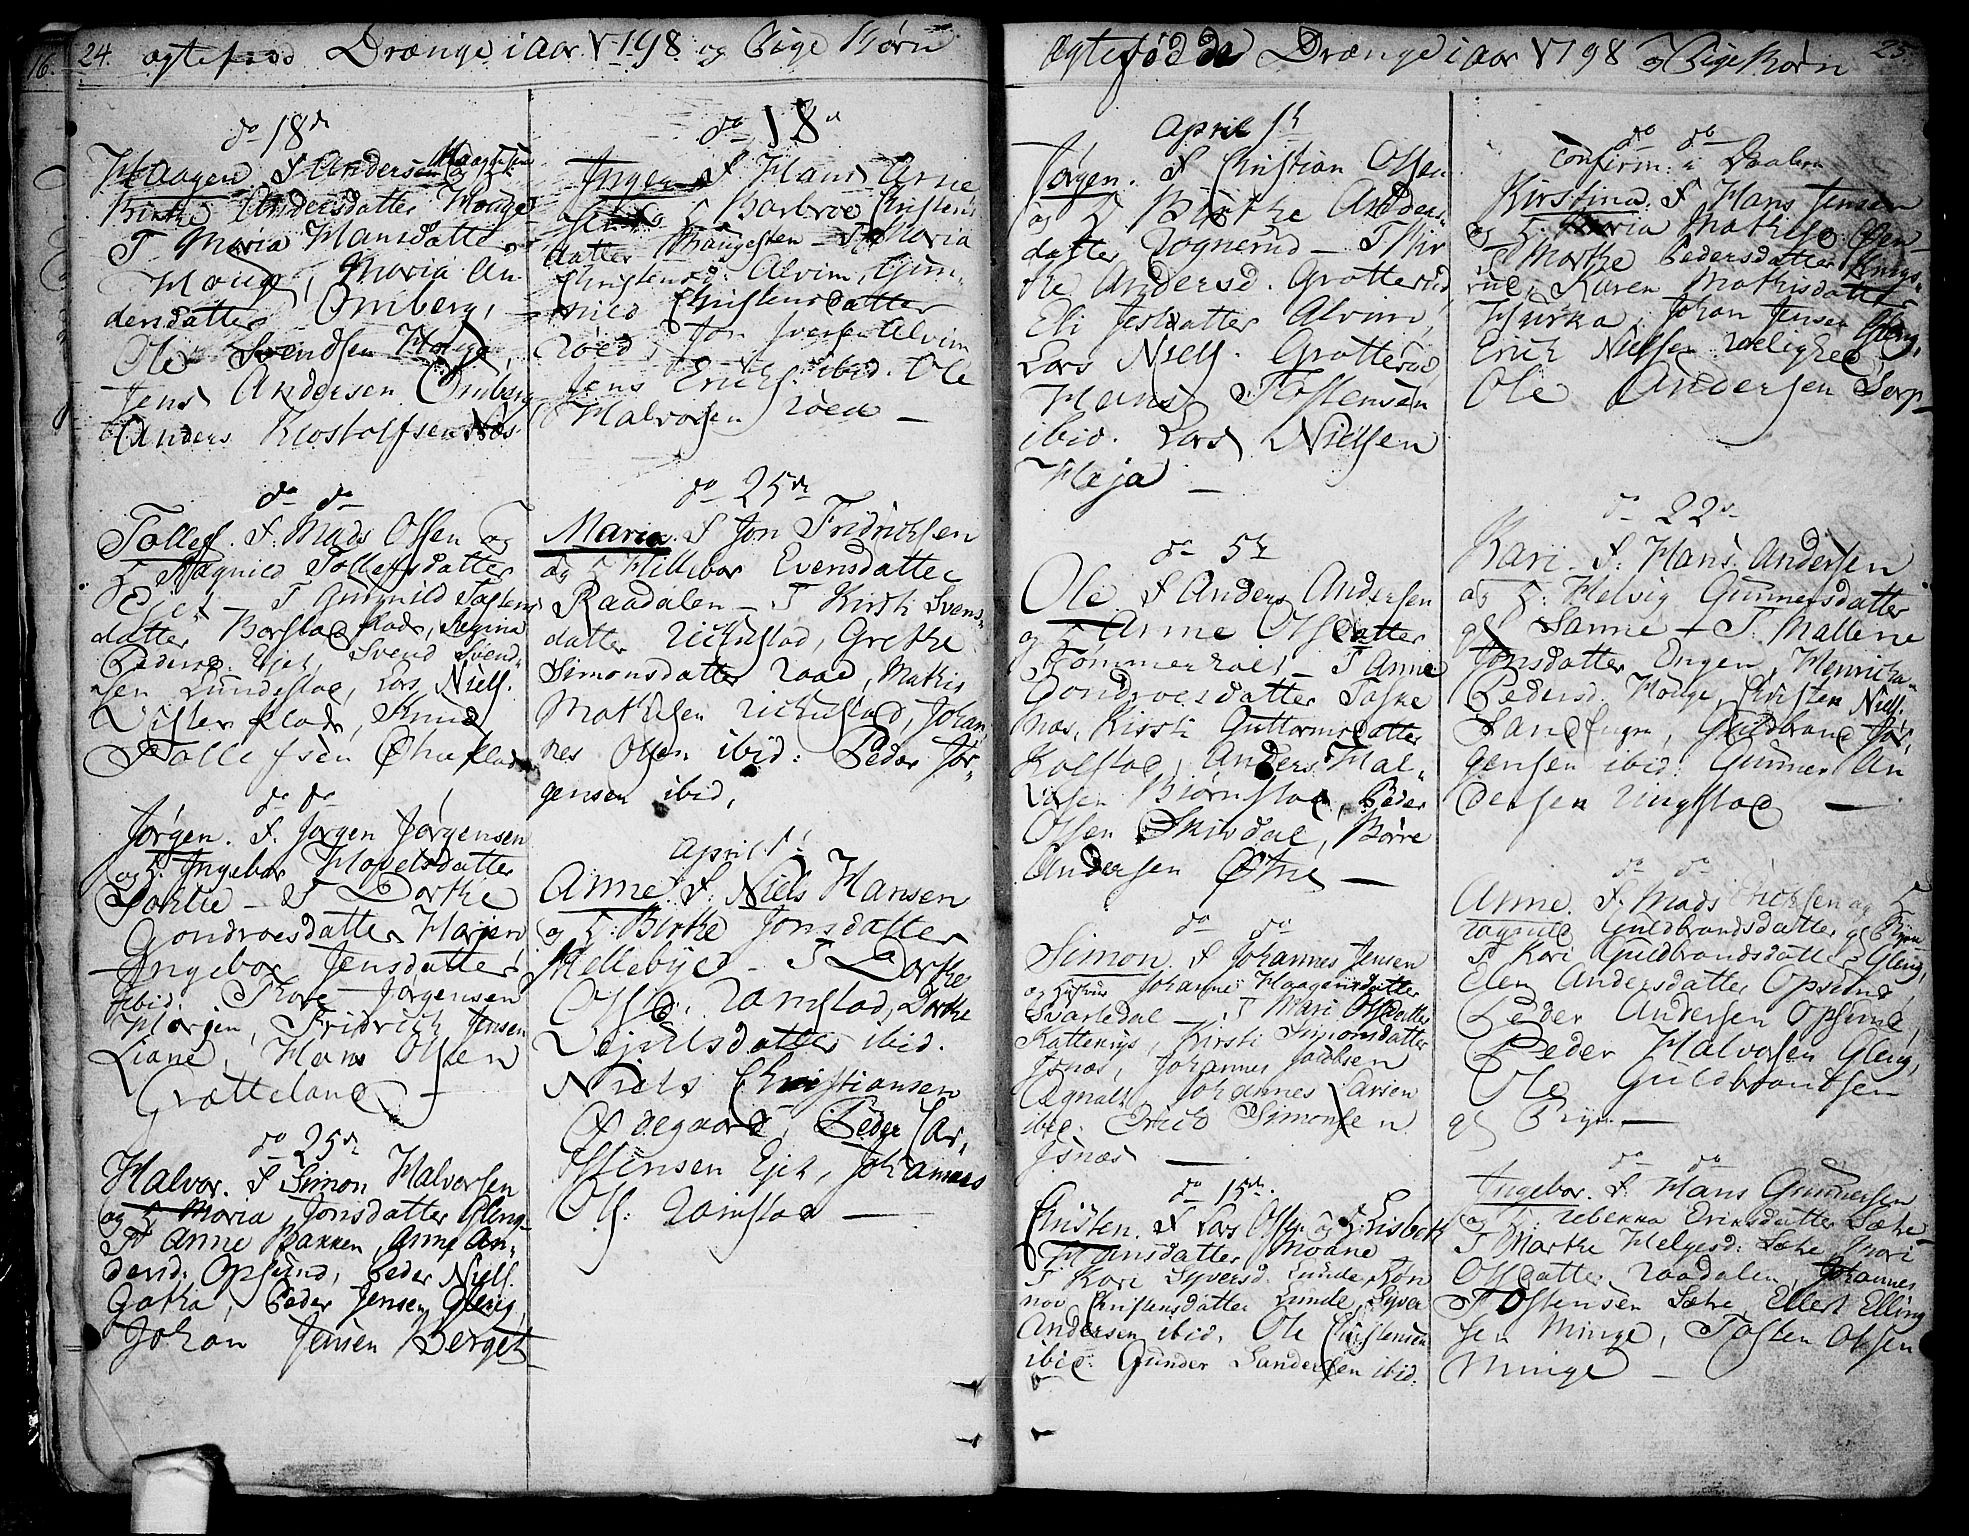 24. ægtefød Drænge i aar 1798 og Pige Børn
do 18de
Haagen. F Anders Haagensen
Birthe Andersdatter Houge
T Maria Hansdatter
Houge, Maria An
dersdatter Omberg,
Ole Svendsen Houge,
Jens Andersen Omberg
Anders Kiostolfsen
do do
Tollef. F. Mads Olsen og
H Magnild Tollefsdatter
Ejek — T Gunnild Tosten
datter Borstad, Regina
Peders. Ejek, Svend Svend
sen Lundestad, Lars Niels.
Visterflade, Knud
Tollefsen
do do
Jørgen. F. Jørgen Jørgensen
og H. Ingebor Hovelsdatter
T Dorthe
Gondroesdatter Harjen
Ingebor Jensdatter
ibid. Thore Jørgensen
Harjen, Fridrich Jensen
Liane, Hans Olsen
Grætteland —
do 25de
Halvor. F Simon Halvorsen
og H Maria Jonsdatter Gleng
T Anne Bakken, Anne An-
dersd: Opsund, Peder Niels.
Gatha, Peder Jensen Gleng
Johan Jensen Berget
do 18de
Ingen F Hans Arne
sen og H Barbroe Christens
datter Haugesten — T Maria
Christensd. Alvim, Gun-
nild Christensdatter
Roed, Jon Iversen Alvim
Jens Erichs. ibid. Ole
Halvorsen Roed —
do 25de
Maria. F Jon Fridrichsen
og H Hellebor Evensdatter
Raadalen — T Kirsti Svens-
datter Kichustad, Grethe
Simonsdatter Raad, Mathis
Mathisen Kichustad, Johan-
nes Olsen ibid: Peder Jør-
gensen ibid,
April 1
Anne F. Niels Hansen
og H: Birthe Jonsdatter
Mellebye — T Dorthe
Olsd: Ramstad, Dorthe
datter ibid.
Niels Christiansen
Ødegaard, Peder Tar-
stensen Ejek, Johannes
Ols: Ramstad —
Ægtefødde Drænge i aar 1798 og Pige Børn 25.
April 1ste
Jørgen. F Christian Olsen
og H Birthe Anders-
datter Rognerud — T Bir
the Andersd. Grotterød
Eli Jesdatter Alvim,
Lars Niels. Grotterød,
Hans Tostensen
ibid. Lars Nielsen
Haja —
do 5te
Ole F Anders Andersen
og H Anne Olsdatter
Tømmerhol — T Anne
Gondroesdatter Taske
næs, Kirsti Guttormsdatter
Kolstad, Anders Hal-
vorsen Biørnstad, Peder
Olsen Skivdal, Børre
Andersen Østne —
do do
Simon. F Johannes Jensen
og Hustrue Johanne Haagensdatter
Svartedal — T Mari Olsdatter
Kattenys, Kirsti Simonsdatter
Isnæs, Johannes Jacobsen
Agnalt, Johannes Larsen
ibid. Erich Simonsen
Isnæs —
do 15de
Christen. F Lars Olsen og H Lisbeth
Hansdatter Moane
T Kari Syversd. Lunde, Ron
nov Christensdatter Lunde, Syver
Andersen ibid. Ole Christensen
ibid. Gunder Gundersen ibid:
do do
Confirm: i Daaben
Kirstina. F Hans Jensen
og H. Maria Mathisd: Gren-
T Marthe Pedersdatter Kings-
rud, Karen Mathisdatter
Hurka, Johan Jensen Gleng,
Erich Nielsen Rolighed
Ole Andersen Sarp —
do 22de
Kari. F. Hans Andersen
og H: Helvig Gunnersdatter
gl Sanne — T. Mallene
Jonsdatter Engen, Henricha
Pedersd. Houge, Christen Niels.
Sand Engen, Guldbrand Jør-
gensen ibid. Gunner An
dersen Ringstad —
do do
Anne. F. Mads Erichsen og H
Ragnild Guldbrandsdatter gl Ryen
T Kari Guldbrandsdatter Gleng,
Elen Andersdatter Opsund,
Peder Andersen Opsund,
Peder Halvorsen Gleng,
Ole Guldbrandsen
gl Ryen —
do do
Ingebor. F. Hans Gunnersen
og H: Rebekka Erichsdatter Sæthe
T Marthe Helgesd: Sæthe, Mari
Olsdatter Raadalen, Johannes
Tostensen Sæthe, Ellert Elling
sen Minge, Tosten Olsen
Minge —